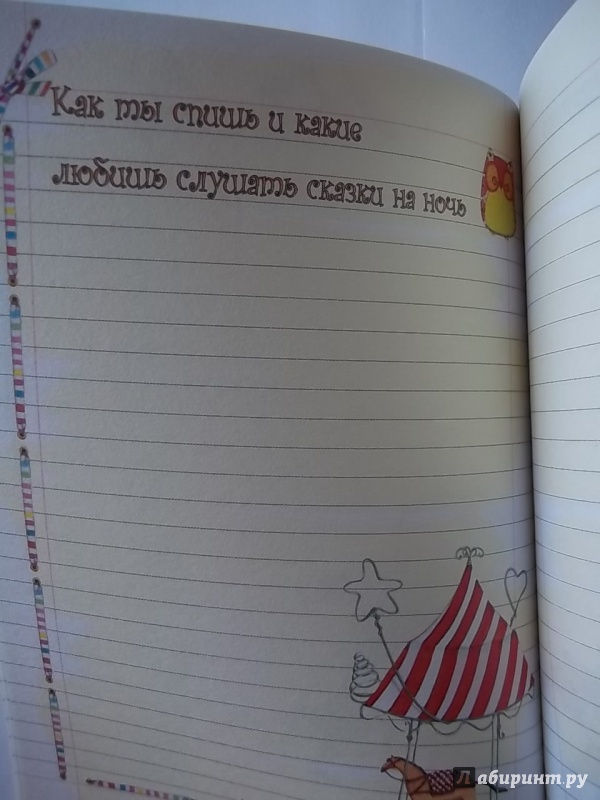 Как ты спишь и какие
любишь слушать сказки на ночь
Лабиринт.ру